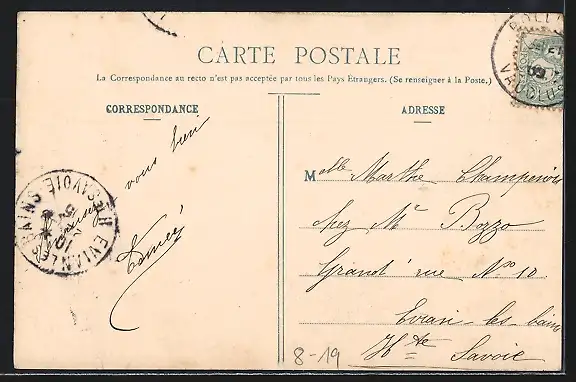 CARTE POSTALE
La Correspondance au recto n'est pas acceptée par tous les Pays Étrangers. (Se renseigner à la Poste.)
CORRESPONDANCE
vous bien
ADRESSE
Melle Marthe
chez Mr Bozzo
Grand' rue No 10
Evian-les-bains
Hte Savoie
EVIAN LES BAINS
HTE SAVOIE
8-19